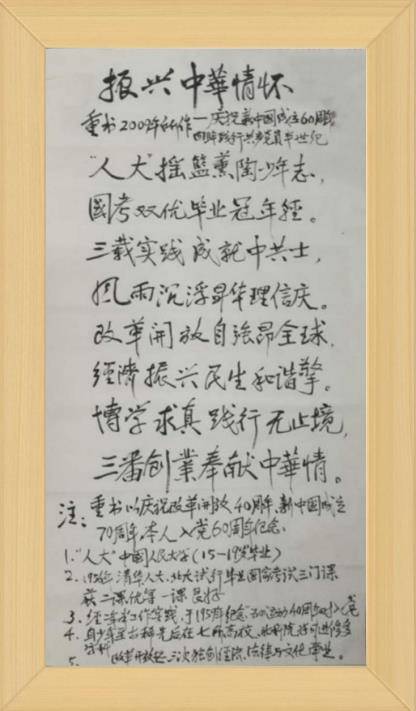 振兴中華情怀
重书2009年所作——庆祝新中国成立60周年
回眸践行共产党员半世纪
"人大"摇篮薰陶少年志，
國考双优毕业冠年轻。
三载实践成就中共士，
风雨沉浮昇华理信庆。
改革開放自強昂全球，
经濟振兴民生和谐擎。
博学求真践行无止境，
三番创業奉献中華情。
注：重书以庆祝改革開放40周年、新中国成立
70周年，本人入党60周年纪念
1."人大"中国人民大学(15-19岁毕业)
2. 清华人大、北大试行毕业国家考试三门课
获二课优等一课良好
3. 经三年工作实践，于1959年纪念五四运动40周年时
4. 自少年至出称是后在七所高校、
5. 改革开放后三次独创经院、法律与文化